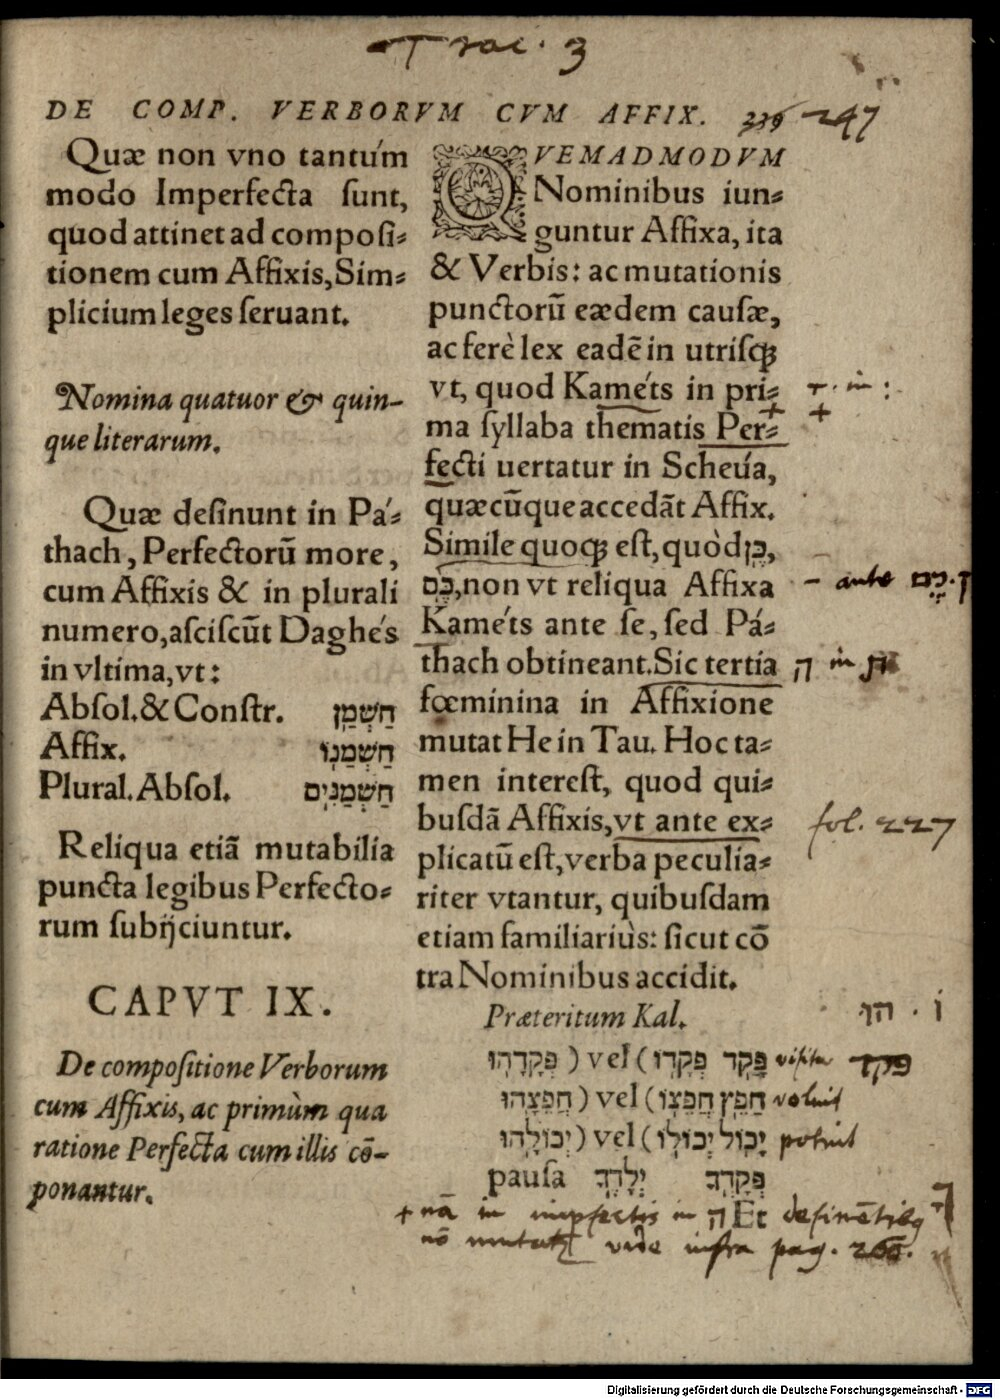 Trac. 3
DE COMP. VERBORVM CVM AFFIX. 239 247
Quæ non vno tantúm
modo Imperfecta ſunt,
quod attinet ad compoſi⸗
tionem cum Affixis, Sim⸗
plicium leges ſeruant.
Nomina quatuor & quin-
que literarum.
Quæ deſinunt in Pá⸗
thach, Perfectorũ more,
cum Affixis & in plurali
numero, aſciſcũt Daghéſ
in vltima, vt:
Abſol. & Conſtr. חַשְׁמַן
Affix. חַשְׁמַנּוֹ
Plural. Abſol. חַשְׁמַנִּים
Reliqua etiã mutabilia
puncta legibus Perfecto⸗
rum ſubijciuntur.
CAPVT IX.
De compoſitione Verborum
cum Affixis, ac primùm qua
ratione Perfecta cum illis cō-
ponantur.
QVEMADMODVM
Nominibus iun⸗
guntur Affixa, ita
& Verbis: ac mutationis
punctorũ eædem cauſæ,
ac ferè lex eadē in utriſqꝫ
vt, quod Kaméts in pri⸗
ma ſyllaba thematis Per⸗
fecti uertatur in Scheúa,
quæcũque accedãt Affix.
Simile quoqꝫ eſt, quòd כֶן,
כֶם, non vt reliqua Affixa
Kaméts ante ſe, ſed Pá⸗
thach obtineant. Sic tertia
fœminina in Affixione
mutat He in Tau. Hoc ta⸗
men intereſt, quod qui⸗
buſdã Affixis, vt ante ex⸗
plicatũ eſt, verba peculia⸗
riter vtantur, quibuſdam
etiam familiariùs: ſicut cō
tra Nominibus accidit.
Præteritum Kal.
פָּקַד פְּקָדוֹ) vel (פְּקָדָהוּ
חָפֵץ חֲפֵצוֹ) vel (חֲפֵצָהוּ
יָכוֹל יְכוֹלוֹ) vel (יְכוֹלָהוּ
pauſa יְלָדֶךָ פְּקָדְךָ
in :
+
- ante כֶם. ן
ה in ת
fol. 227
הו . וֹ
פקד
voluit
potuit
+ nã in impfectis in ה Et deſinētibꝫ
nō mutat vide infra pag. 260.
Digitalisierung gefördert durch die Deutsche Forschungsgemeinschaft - DFG